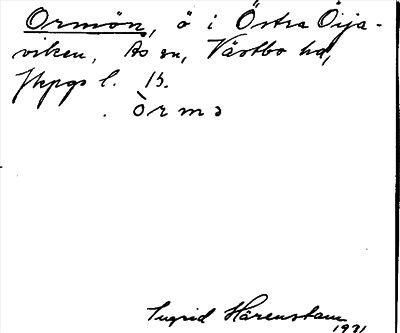 Ormön, ö i Östra Öija-
viken, Ås sn, Västbo hd,
Jkpgs l. 13.
. òrmə
Ingrid Härenstam
1931